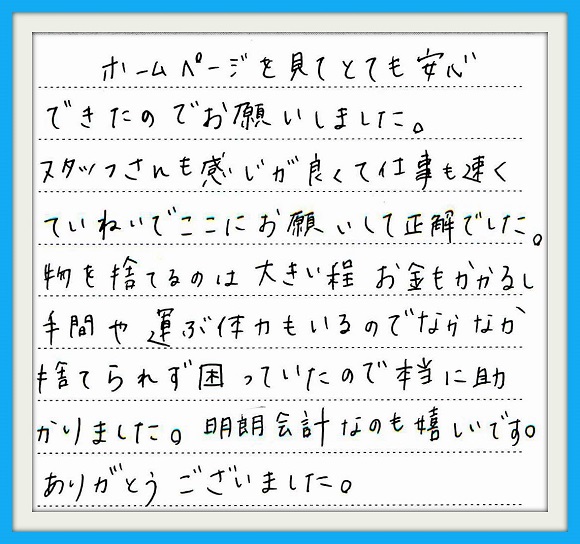 ホームページを見てとても安心
できたのでお願いしました。
スタッフさんも感じが良くて仕事も速く
ていねいでここにお願いして正解でした。
物を捨てるのは大きい程お金もかかるし
手間や運ぶ体力もいるのでなかなか
捨てられず困っていたので本当に助
かりました。明朗会計なのも嬉しいです。
ありがとうございました。